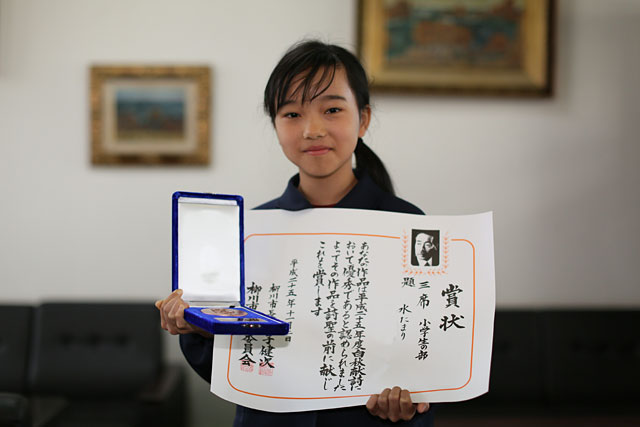 賞状
三席 小学生の部
題 水たまり
あなたの作品は平成二十五年度白秋献詩に
おいて優秀であると認められました
よってその作品を詩聖の前に献じ
これを賞します
平成二十五年十一月二日
柳川市長
健次
柳川市
委員会